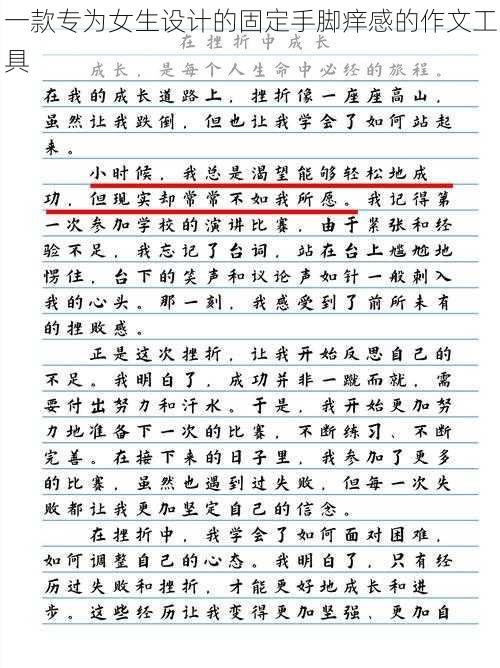 一款专为女生设计的固定手脚痒感的作文工
具
在挫折中成长
成长，是每个人生命中必经的旅程。
在我的成长道路上，挫折像一座座高山，
虽然让我跌倒，但也让我学会了如何站起
来。
小时候，我总是渴望能够轻松地成
功，但现实却常常不如我所愿。我记得第
一次参加学校的演讲比赛，由于紧张和经
验不足，我忘记了台词，站在台上尴尬地
愣住，台下的笑声和议论声如针一般刺入
我的心头。那一刻，我感受到了前所未有
的挫败感。
正是这次挫折，让我开始反思自己的
不足。我明白了，成功并非一蹴而就，需
要付出努力和汗水。于是，我开始更加努
力地准备下一次的比赛，不断练习、不断
完善。在接下来的日子里，我参加了更多
的比赛，虽然也遇到过失败，但每一次失
败都让我更加坚定自己的信念。
在挫折中，我学会了如何面对困难，
如何调整自己的心态。我明白了，只有经
历过失败和挫折，才能更好地成长和进
步。这些经历让我变得更加坚强、更加自